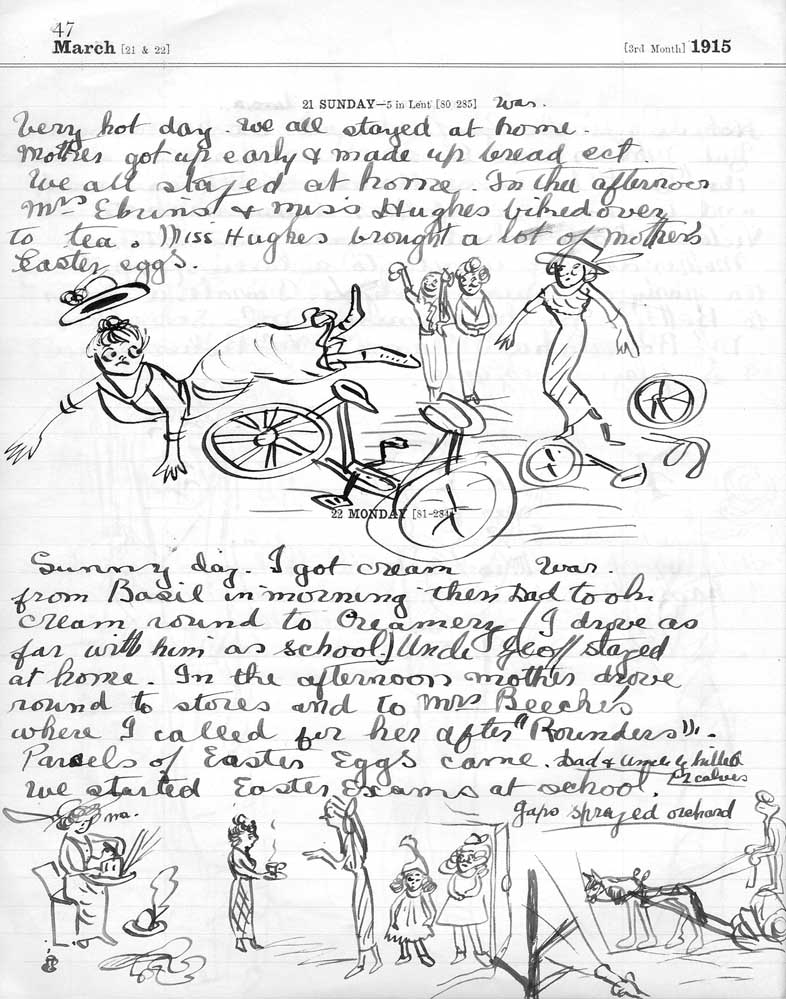 47
March [21 & 22] [3rd Month] 1915
21 SUNDAY—5 in Lent [80-285] War.
Very hot day. We all stayed at home.
Mother got up early & made up bread ect
We all stayed at home. In the afternoon
Mrs & Miss Hughes biked over
to tea. Miss Hughes brought a lot of Mother's
Easter eggs.
22 MONDAY [81-284]
Sunny day. I got cream War.
from Basil in morning then Dad took
cream round to Creamery (I drove as
far with him as school) Uncle Geoff stayed
at home. In the afternoon mother drove
round to stores and to Mrs Beeche's
where I called for her after "Rounders".
Parcels of Easter Eggs came. Dad & Uncle G killed
2 calves
We started Easter Exams at school.
Japs sprayed orchard
ma.